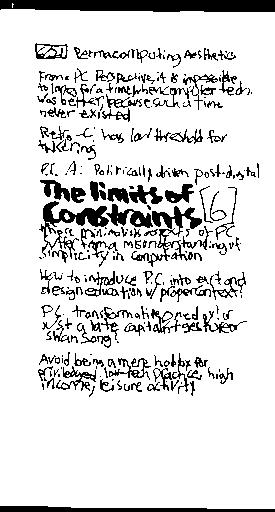 Permacomputing Aesthetics
From a PC Perspective, it is impossible
to long for a time when computer tech.
was better, because such a time
never existed
Retro-C: has low threshold for
tinkering
P.C. A: Politically driven post-digital
The limits of
Constraints [6]
minimalist aspects of PC
suffer from a misunderstanding of
simplicity in computation
How to introduce P.C. into art and
design education w/ proper context?
P.C. transformative
just a late capitalist gesture or
swan song?
Avoid being a mere hobby for
privileged low-tech practice, high
income, leisure activity